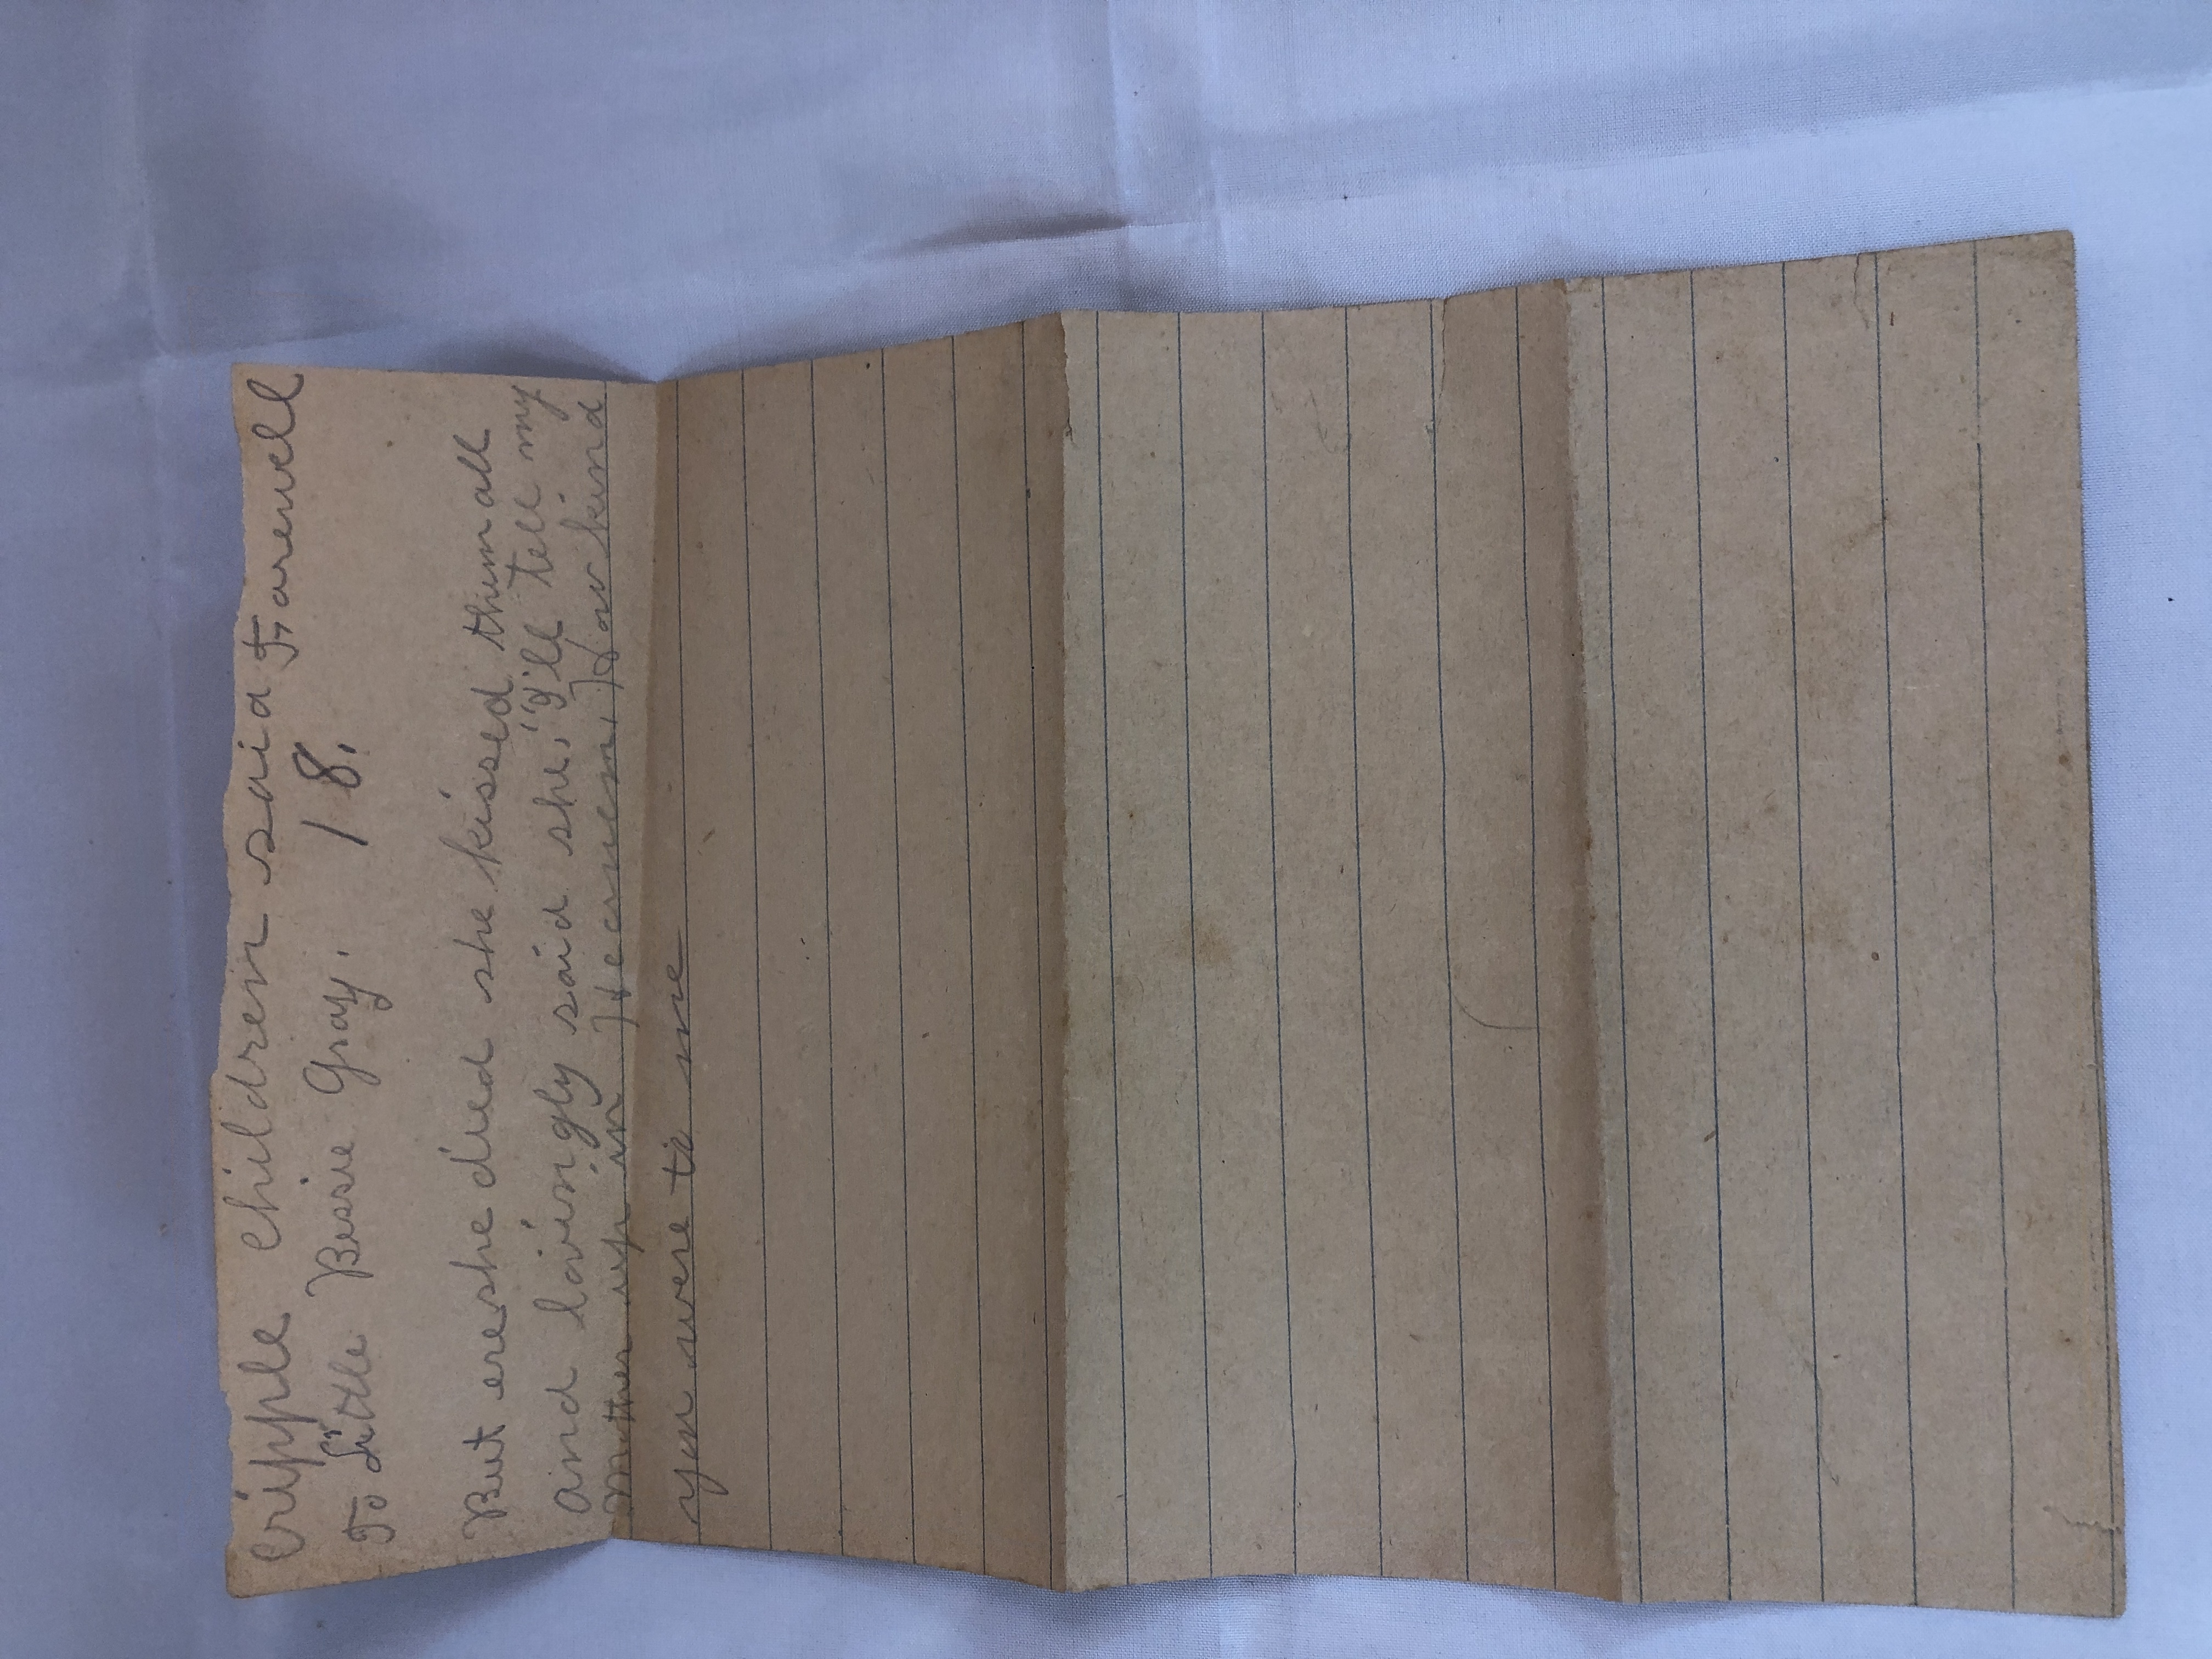 Cripple Children said Farewell
To Little Bessie Gray. 18.
But ere she died she kissed them all
and lovingly said she, "I'll tell my
Mother up in Heaven, How kind
you were to me